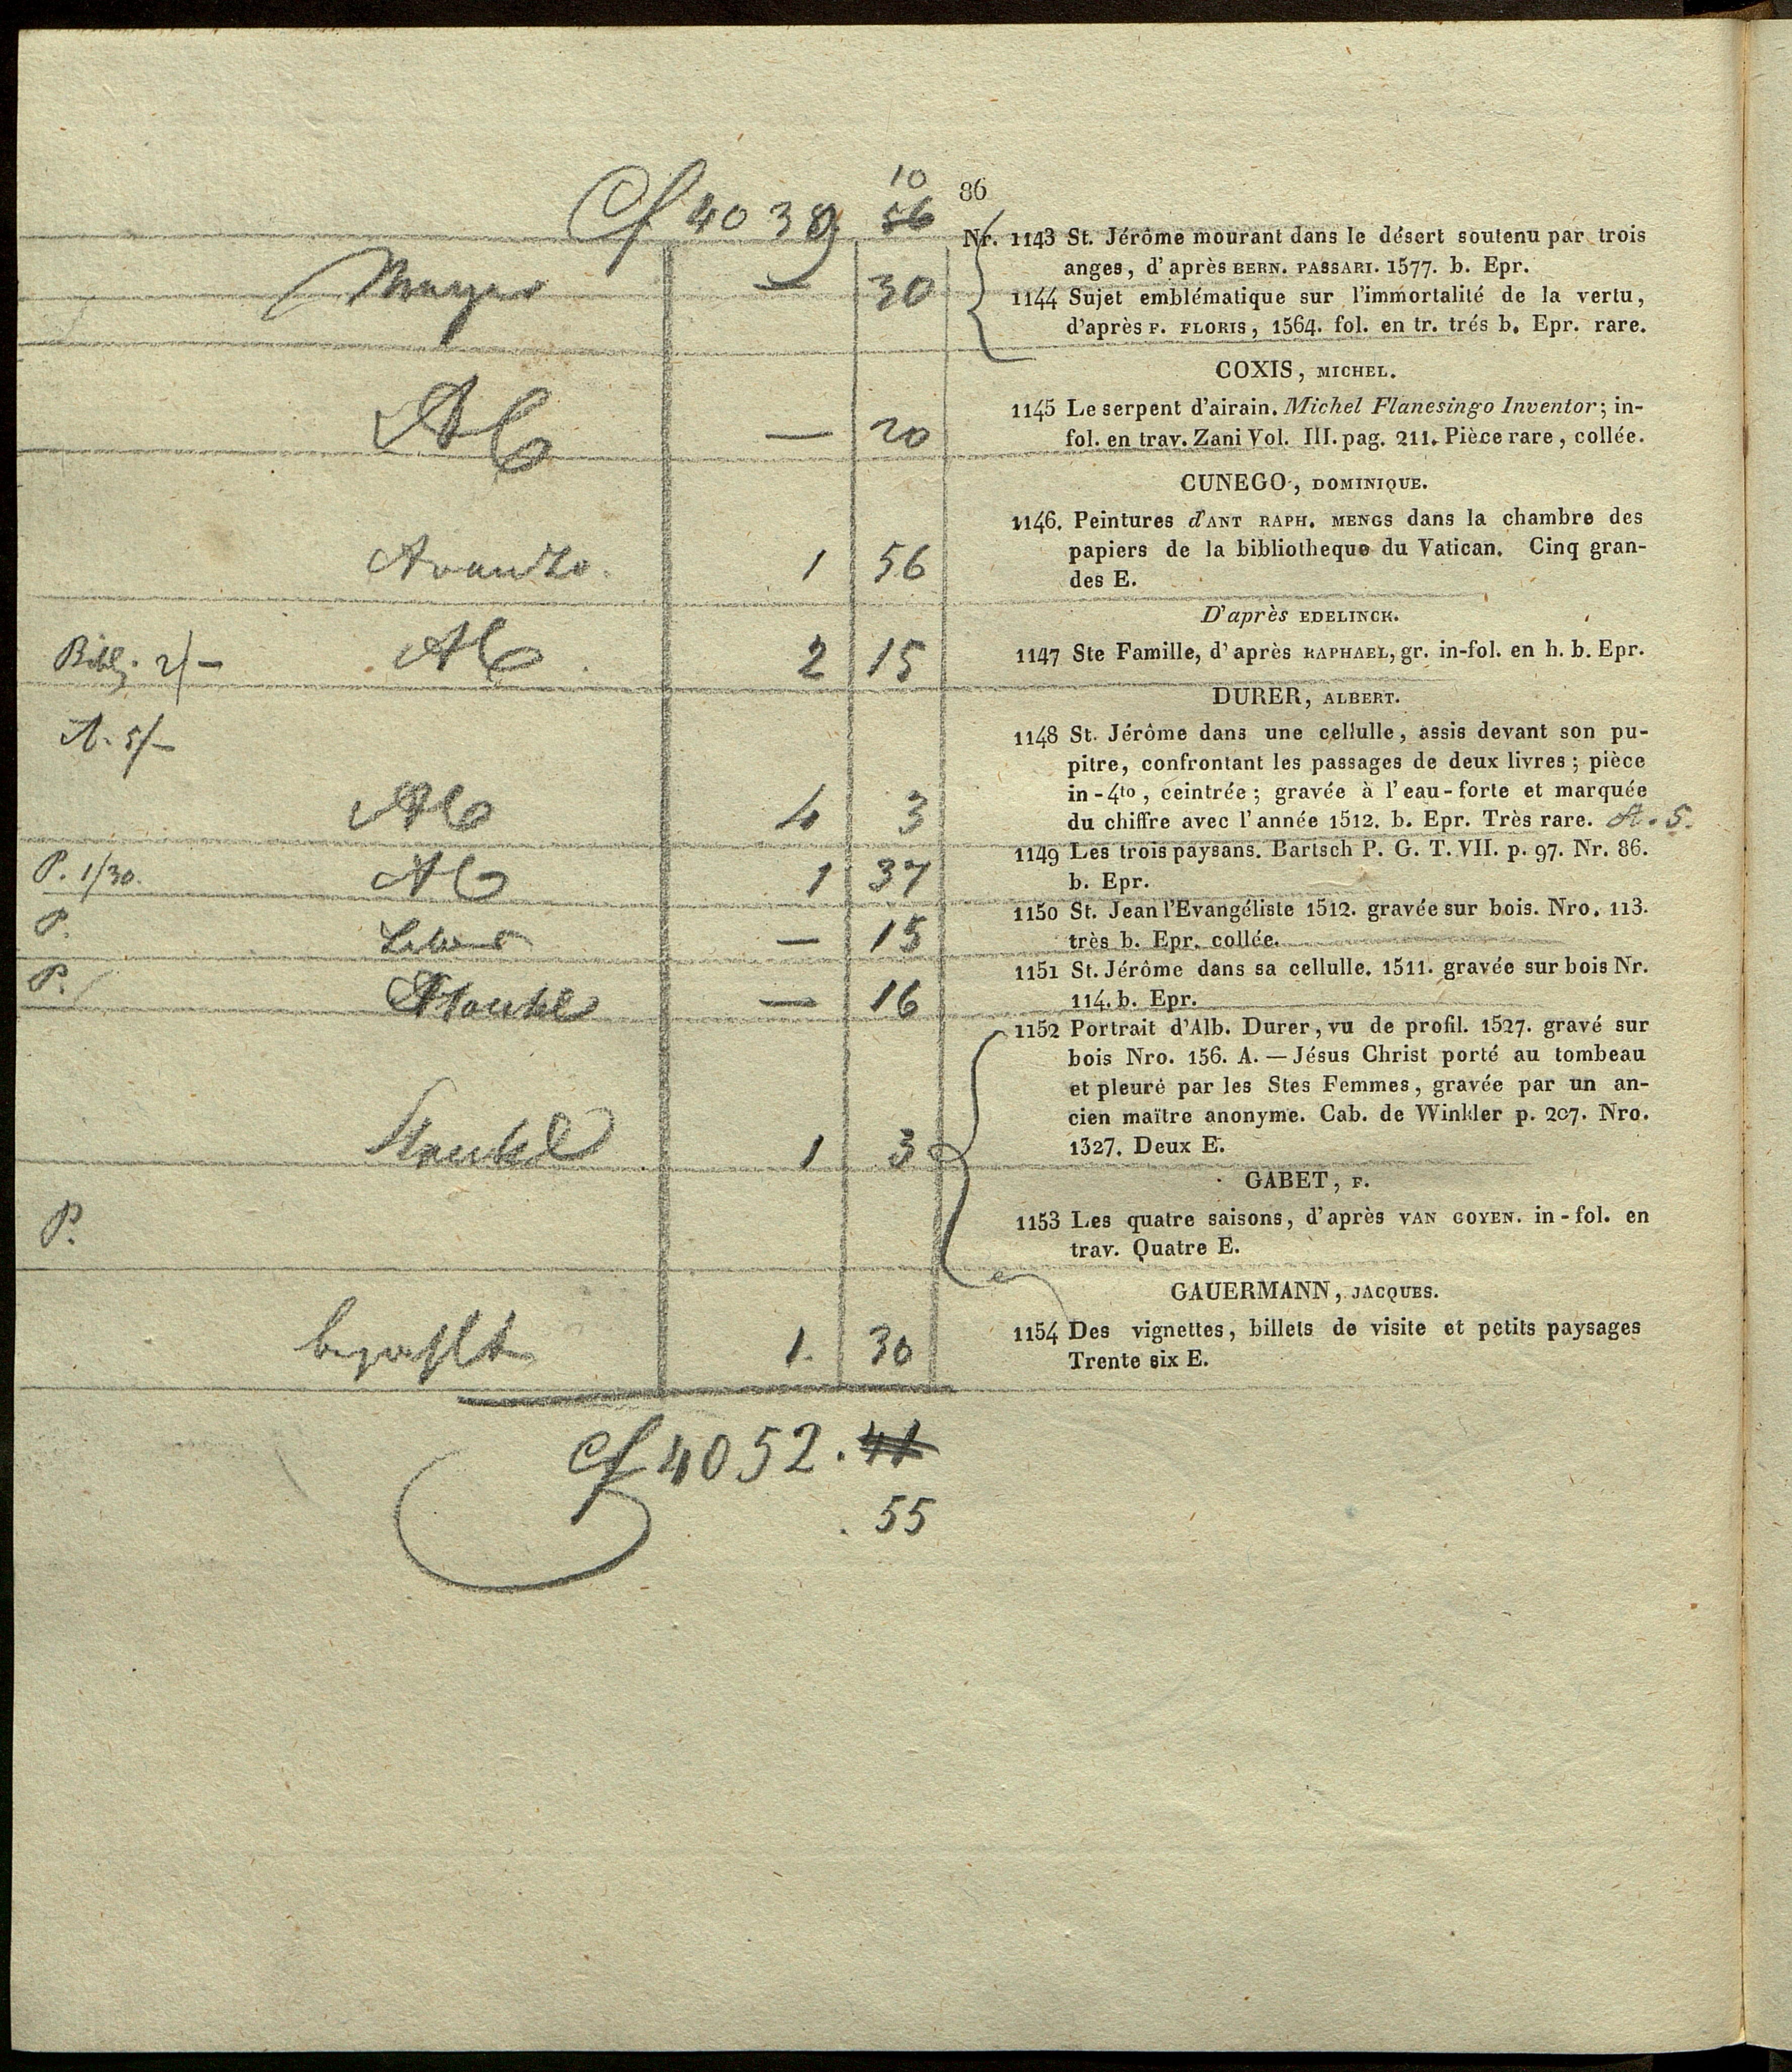 10
86
Cf 4039 56
Nr. 1143 St. Jérôme mourant dans le désert soutenu par trois
anges, d'après BERN. PASSARI. 1577. b. Epr.
— 30
1144 Sujet emblématique sur l'immortalité de la vertu,
d'après F. FLORIS, 1564. fol. en tr. trés b. Epr. rare.
COXIS, MICHEL.
— 20
1145 Le serpent d'airain. Michel Flanesingo Inventor; in-
fol. en trav. Zani Vol. III. pag. 211. Pièce rare, collée.
CUNEGO, DOMINIQUE.
1 56
1146. Peintures d'ANT RAPH. MENGS dans la chambre des
papiers de la bibliotheque du Vatican. Cinq gran-
des E.
D'après EDELINCK.
2 15
1147 Ste Famille, d'après RAPHAEL, gr. in-fol. en h. b. Epr.
DURER, ALBERT.
A. 5/—
4 3
1148 St. Jérôme dans une cellulle, assis devant son pu-
pitre, confrontant les passages de deux livres; pièce
in-4to, ceintrée; gravée à l'eau-forte et marquée
du chiffre avec l'année 1512. b. Epr. Très rare. A. 5.
P. 1/30. 1 37
1149 Les trois paysans. Bartsch P. G. T. VII. p. 97. Nr. 86.
b. Epr.
P. — 15
1150 St. Jean l'Evangéliste 1512. gravée sur bois. Nro. 113.
très b. Epr. collée.
P. — 16
1151 St. Jérôme dans sa cellulle. 1511. gravée sur bois Nr.
114. b. Epr.
1 3
1152 Portrait d'Alb. Durer, vu de profil. 1527. gravé sur
bois Nro. 156. A. — Jésus Christ porté au tombeau
et pleuré par les Stes Femmes, gravée par un an-
cien maïtre anonyme. Cab. de Winkler p. 207. Nro.
1327. Deux E.
GABET, F.
P.
1153 Les quatre saisons, d'après VAN GOYEN. in-fol. en
trav. Quatre E.
GAUERMANN, JACQUES.
bezahlt 1. 30
1154 Des vignettes, billets de visite et petits paysages
Trente six E.
Cf 4052. 41
. 55